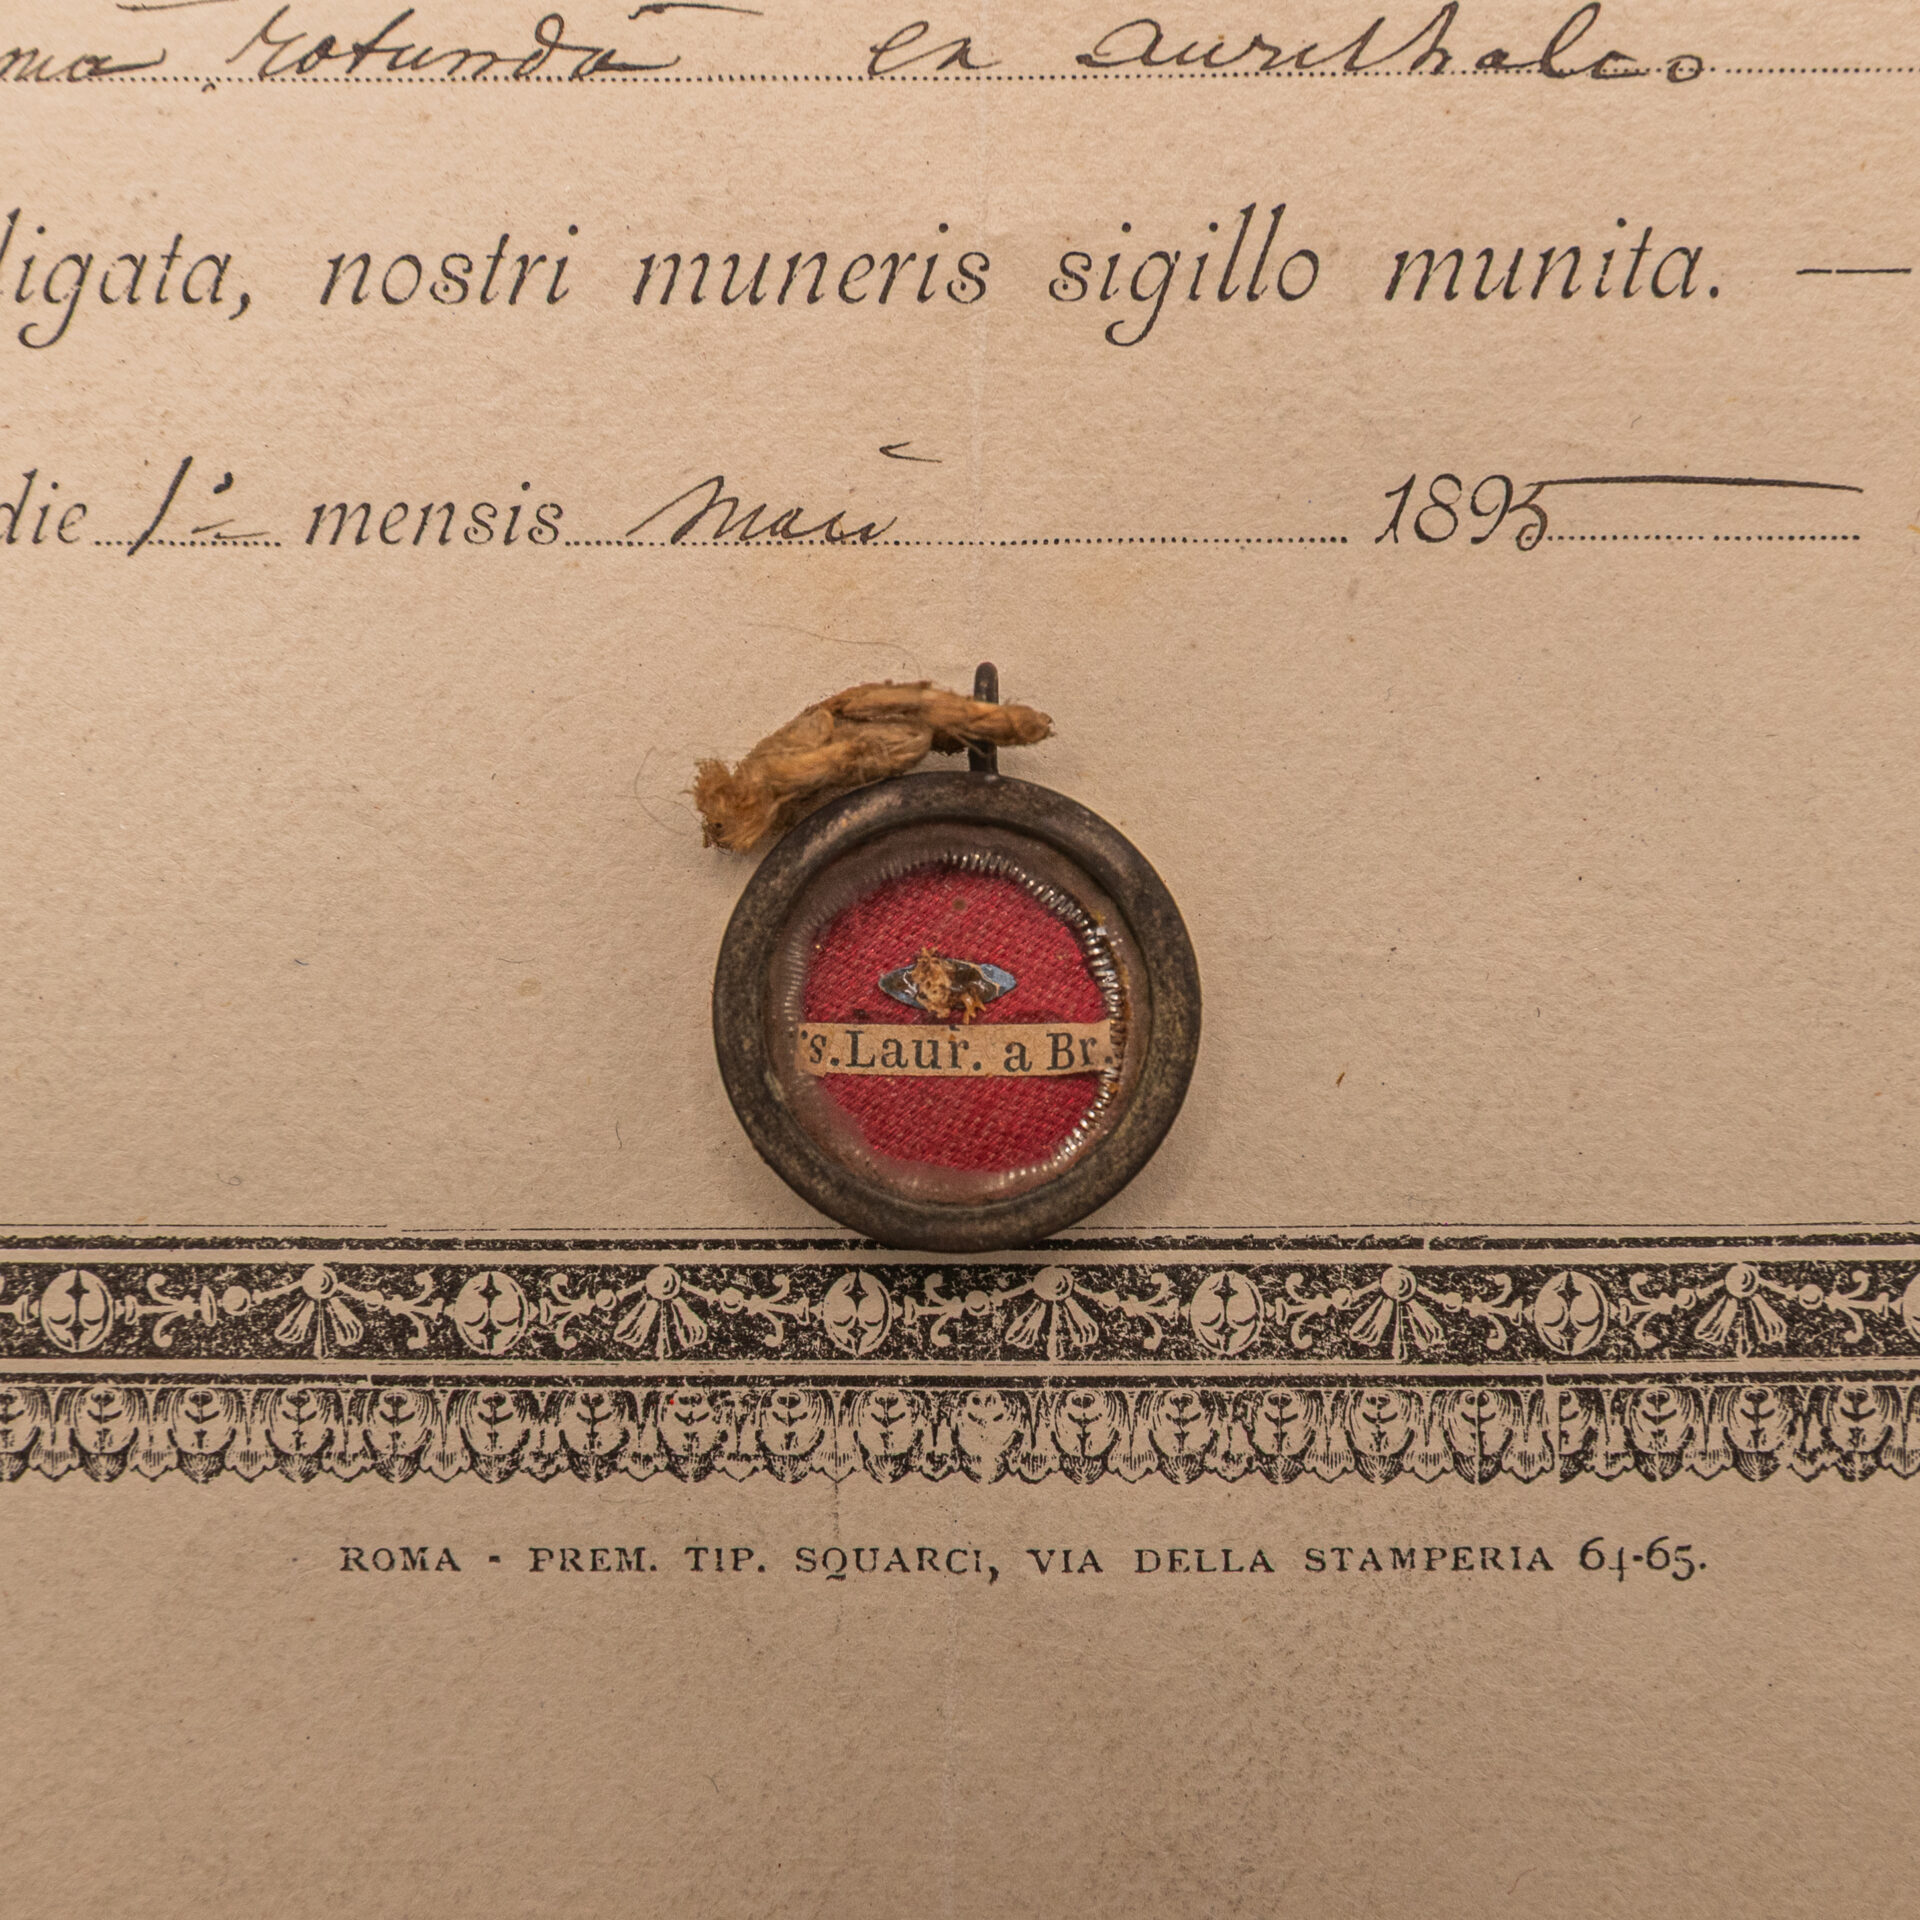 ma rotunda ex aurichalco
ligata, nostri muneris sigillo munita. —
die 1ª mensis Maii 1895
s. Laur. a Br.
ROMA - PREM. TIP. SQUARCI, VIA DELLA STAMPERIA 64-65.